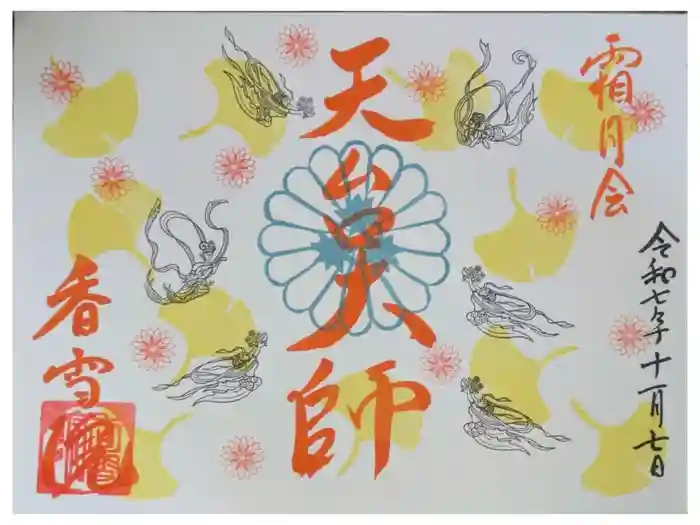 霜月会
令和七年十一月七日
天台大師
香雪院